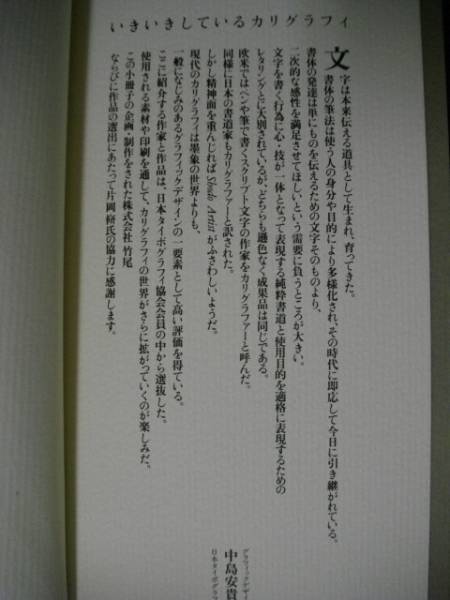 いきいきしているカリグラフィ
文字は本来伝える道具として生まれ、育ってきた。
書体の筆法は使う人の身分や目的により多様化され、その時代に即応して今日に引き継がれている。
書体の発達は単にものを伝えるための文字そのものより、
二次的な感性を満足させてほしいという需要に負うところが大きい。
文字を書く行為に心・技が一体となって表現する純粋書道と使用目的を適格に表現するための
レタリングとに大別されているが、どちらも遜色なく成果品は同じである。
欧米ではペンや筆で書くスクリプト文字の作家をカリグラファーと呼んだ。
同様に日本の書道家もカリグラファーと訳された。
しかし精神面を重んじれば Shodo Artist がふさわしいようだ。
現代のカリグラフィは墨象の世界よりも、
一般になじみのあるグラフィックデザインの一要素として高い評価を得ている。
ここに紹介する作家と作品は、日本タイポグラフィ協会会員の中から選抜した。
使用される素材や印刷を通して、カリグラフィの世界がさらに拡がっていくのが楽しみだ。
この小冊子の企画・制作をされた株式会社 竹尾
ならびに作品の選出にあたって片岡 脩氏の協力に感謝します。
グラフィックデザイ
日本タイポグラフ
中島安貴